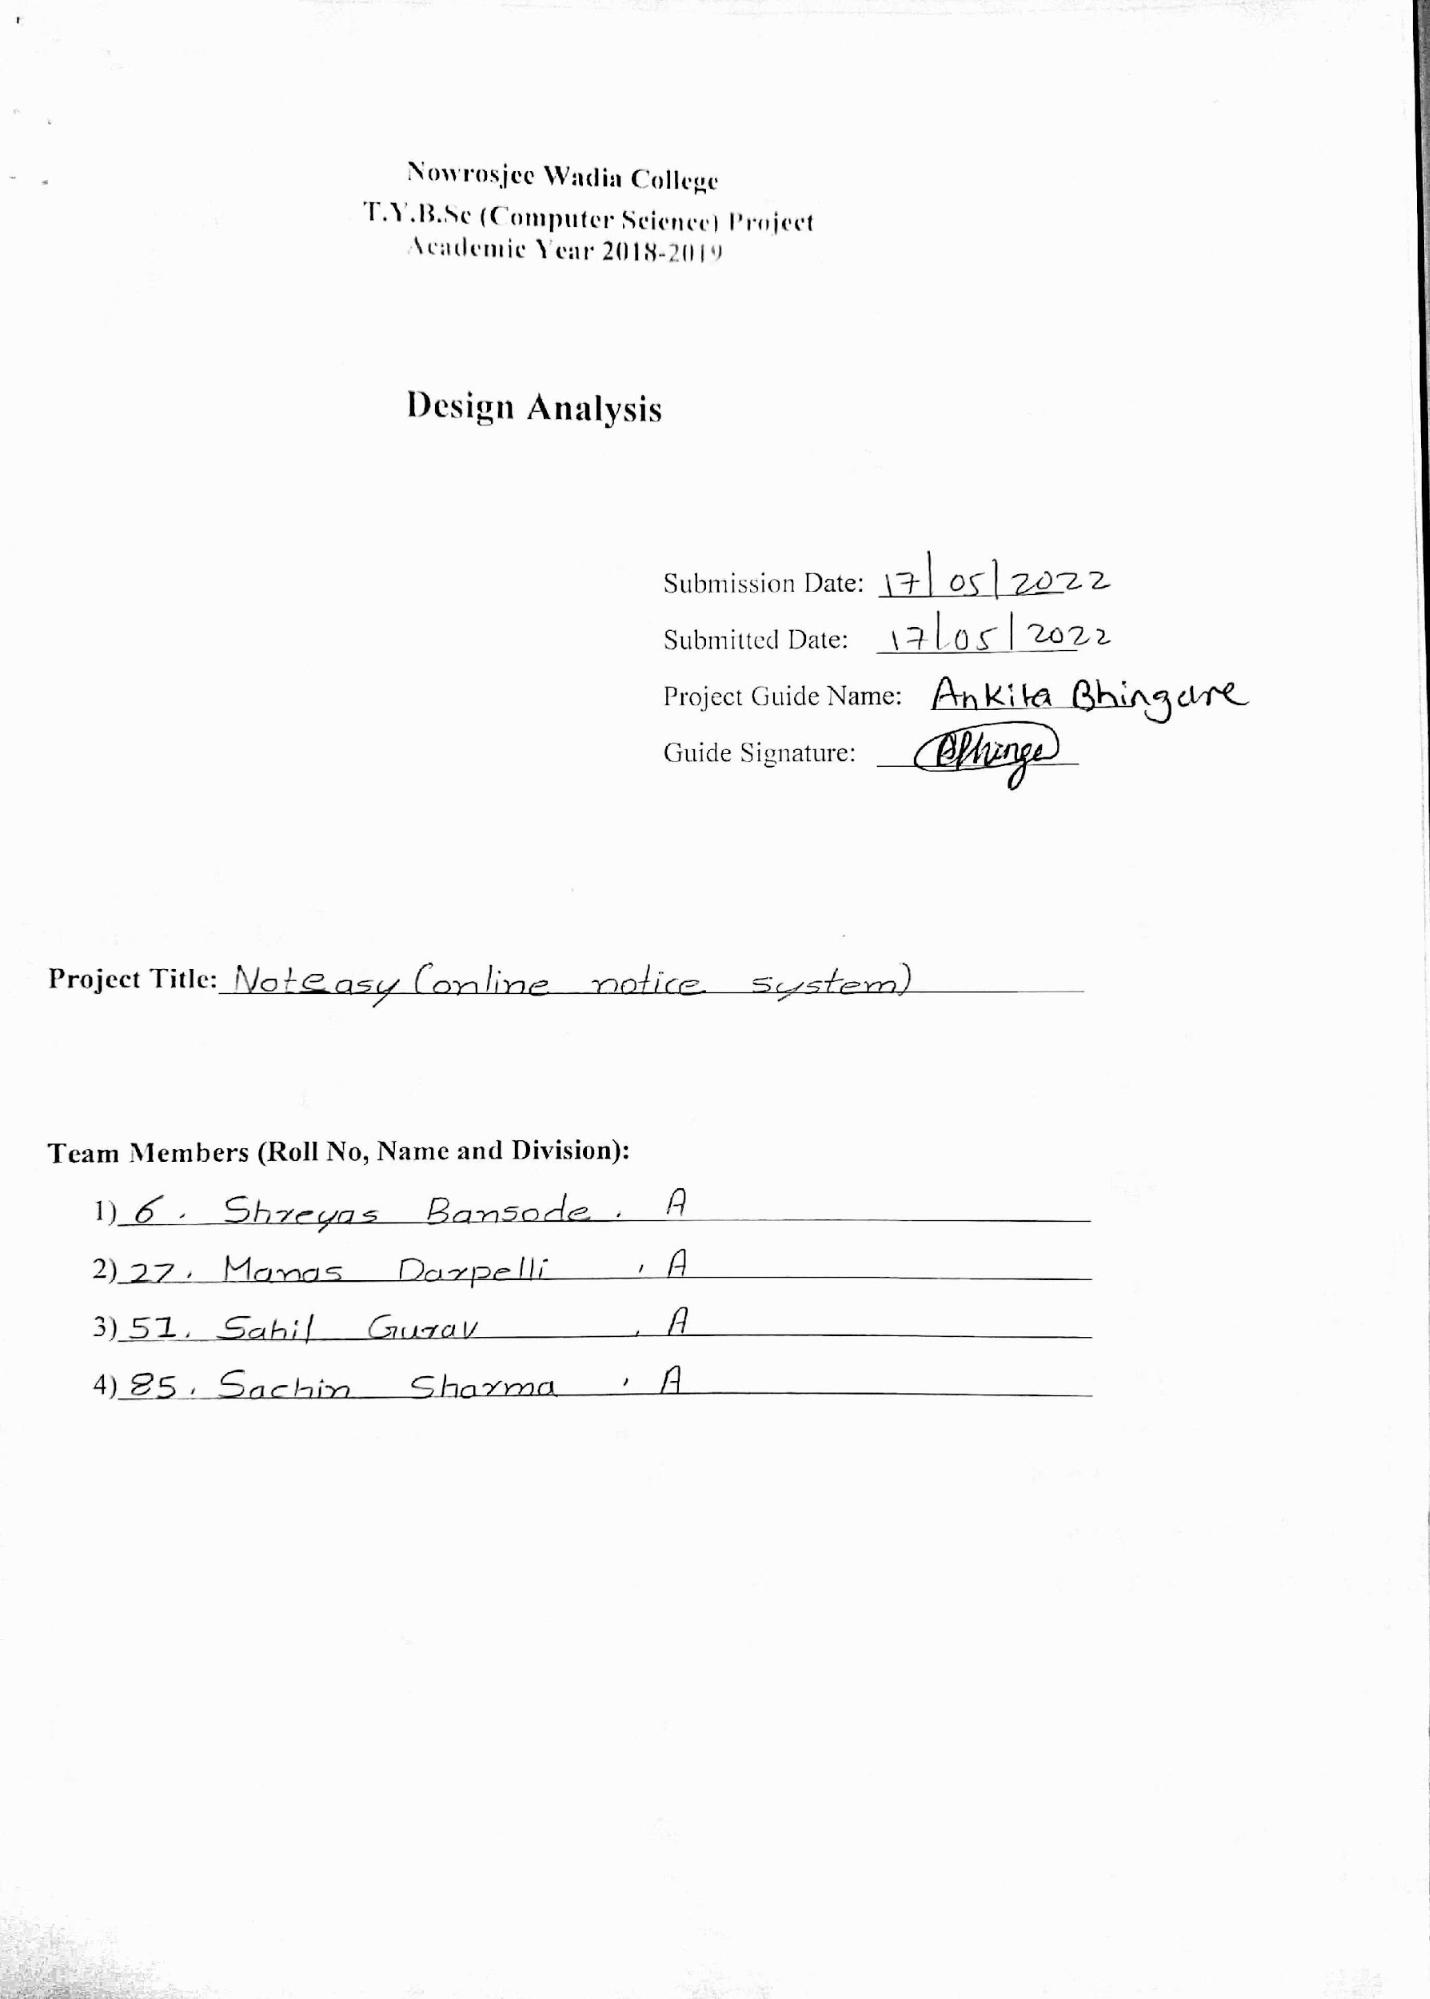 Nowrosjee Wadia College
T.Y.B.Sc (Computer Science) Project
Academic Year 2018-2019
Design Analysis
Submission Date: 17/05/2022
Submitted Date: 17/05/2022
Project Guide Name: Ankita Bhingare
Guide Signature:
Project Title: Noteasy (online notice system)
Team Members (Roll No, Name and Division):
1) 6. Shreyas Bansode. A
2) 27. Manas Darpelli , A
3) 51. Sahil Gurav . A
4) 85. Sachin Sharma , A